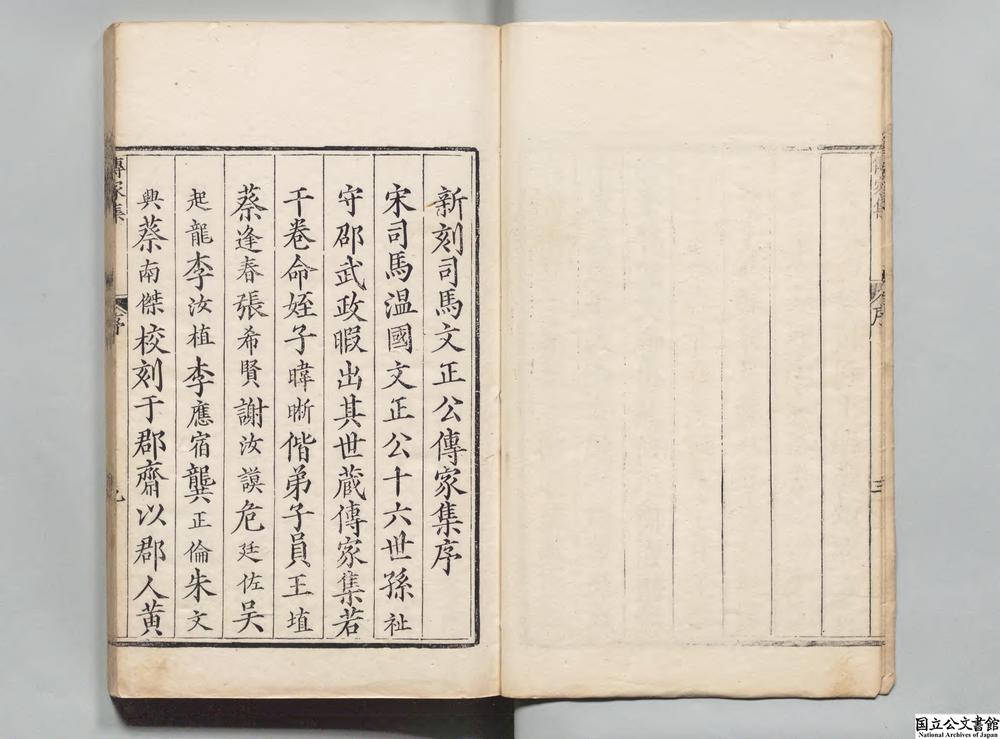 新刻司馬文正公傳家集序
宋司馬温國文正公十六世孫祉
守邵武政暇出其世蔵傳家集若
干卷命姪子暐晣偕弟子員王埴
蔡逢春張希賢謝汝謨危廷佐吴
起龍李汝植李應宿龔正倫朱文
興蔡南傑校刻于郡齋以郡人黄
傳家集
序
序
三
国立公文書館
National Archives of Japan